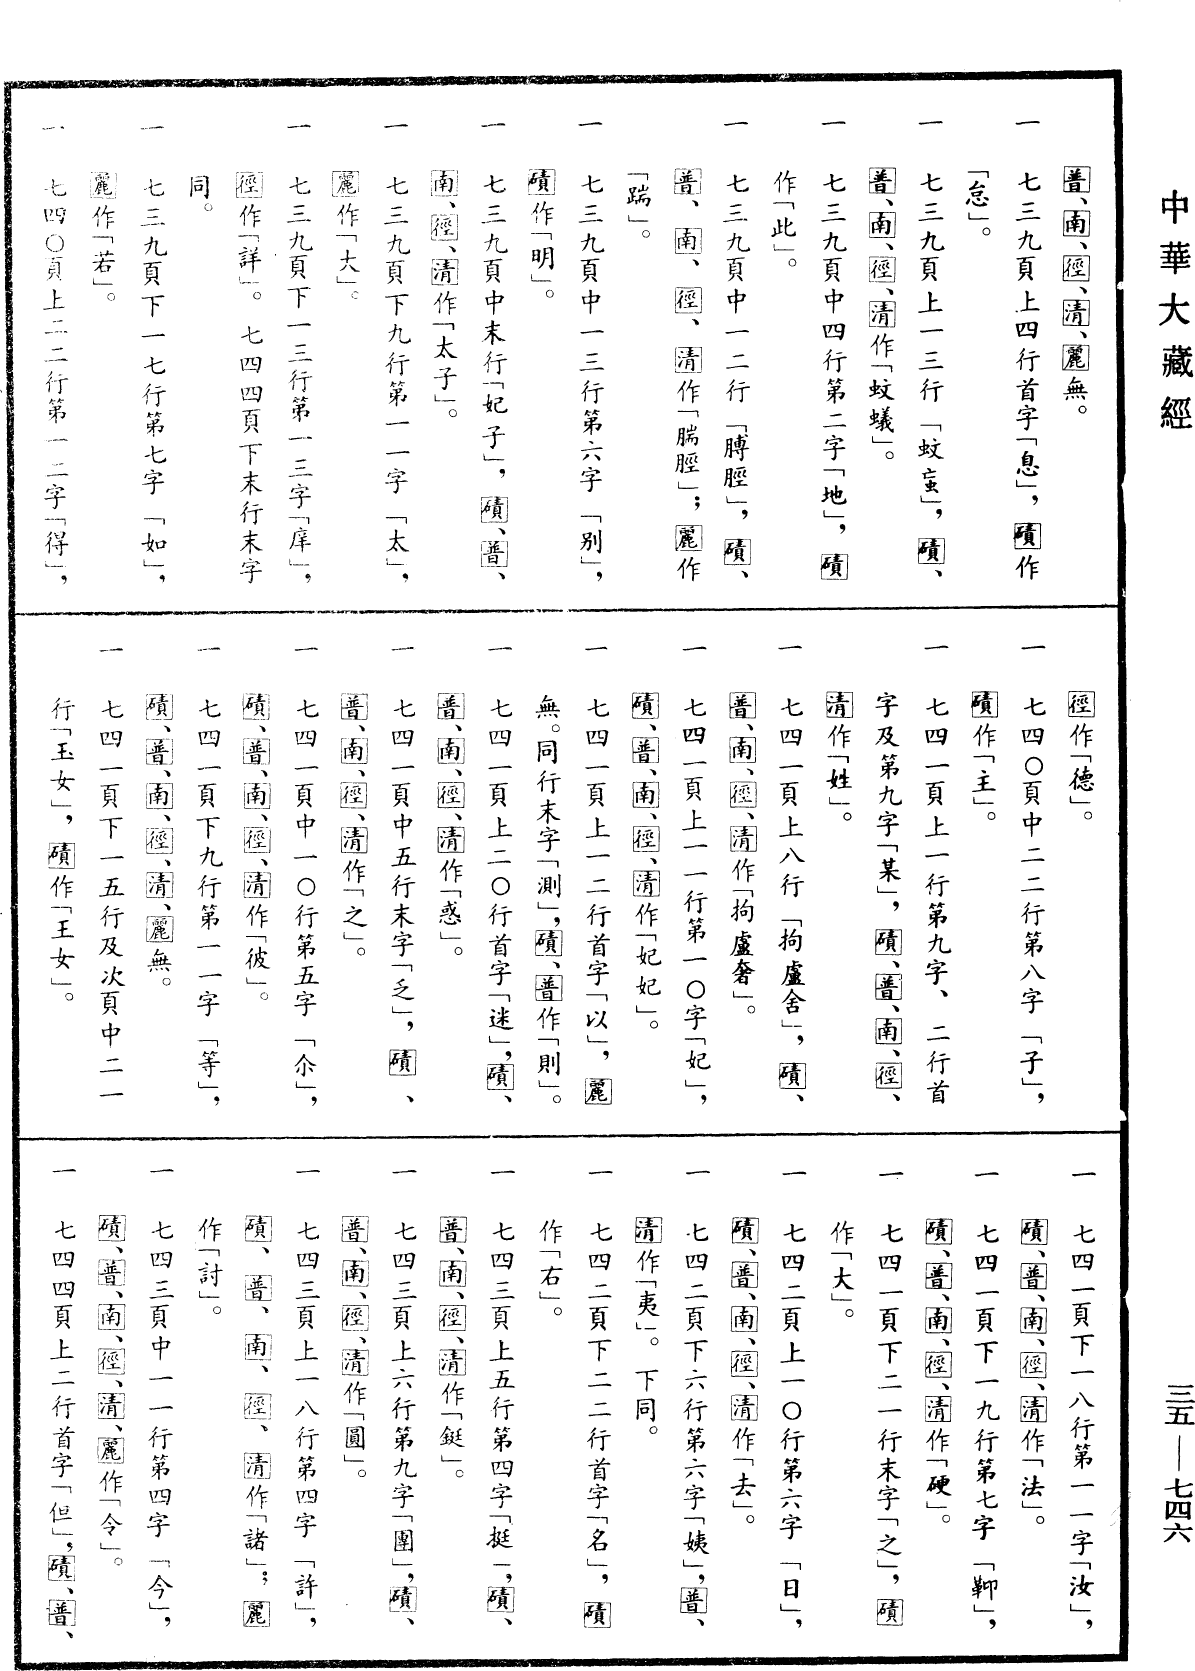 中華大藏經
三五—七四六
普、南、徑、清、麗無。
一 七三九頁上四行首字「息」，磧作
「怠」。
一 七三九頁上一三行「蚊䖟」，磧、
普、南、徑、清作「蚊蟻」。
一 七三九頁中四行第二字「地」，磧
作「此」。
一 七三九頁中一二行「膊脛」，磧、
普、南、徑、清作「腨脛」；麗作
「踹」。
一 七三九頁中一三行第六字「別」，
磧作「明」。
一 七三九頁中末行「妃子」，磧、普、
南、徑、清作「太子」。
一 七三九頁下九行第一一字「太」，
麗作「大」。
一 七三九頁下一三行第一三字「庠」，
徑作「詳」。七四四頁下末行末字
同。
一 七三九頁下一七行第七字「如」，
麗作「若」。
一 七四〇頁上二二行第一二字「得」，
徑作「德」。
一 七四〇頁中二二行第八字「子」，
磧作「主」。
一 七四一頁上一行第九字、二行首
字及第九字「某」，磧、普、南、徑、
清作「姓」。
一 七四一頁上八行「拘盧舍」，磧、
普、南、徑、清作「拘盧奢」。
一 七四一頁上一一行第一〇字「妃」，
磧、普、南、徑、清作「妃妃」。
一 七四一頁上一二行首字「以」，麗
無。同行末字「測」，磧、普作「則」。
一 七四一頁上二〇行首字「迷」，磧、
普、南、徑、清作「惑」。
一 七四一頁中五行末字「乏」，磧、
普、南、徑、清作「之」。
一 七四一頁中一〇行第五字「尒」，
磧、普、南、徑、清作「彼」。
一 七四一頁下九行第一一字「等」，
磧、普、南、徑、清、麗無。
一 七四一頁下一五行及次頁中二一
行「玉女」，磧作「王女」。
一 七四一頁下一八行第一一字「汝」，
磧、普、南、徑、清作「法」。
一 七四一頁下一九行第七字「鞕」，
磧、普、南、徑、清作「硬」。
一 七四一頁下二一行末字「之」，磧
作「大」。
一 七四二頁上一〇行第六字「日」，
磧、普、南、徑、清作「去」。
一 七四二頁下六行第六字「姨」，普、
清作「夷」。下同。
一 七四二頁下二二行首字「名」，磧
作「右」。
一 七四三頁上五行第四字「挺」，磧、
普、南、徑、清作「鋌」。
一 七四三頁上六行第九字「團」，磧、
普、南、徑、清作「圓」。
一 七四三頁上一八行第四字「許」，
磧、普、南、徑、清作「諸」；麗
作「討」。
一 七四三頁中一一行第四字「今」，
磧、普、南、徑、清、麗作「令」。
一 七四四頁上二行首字「但」，磧、普、